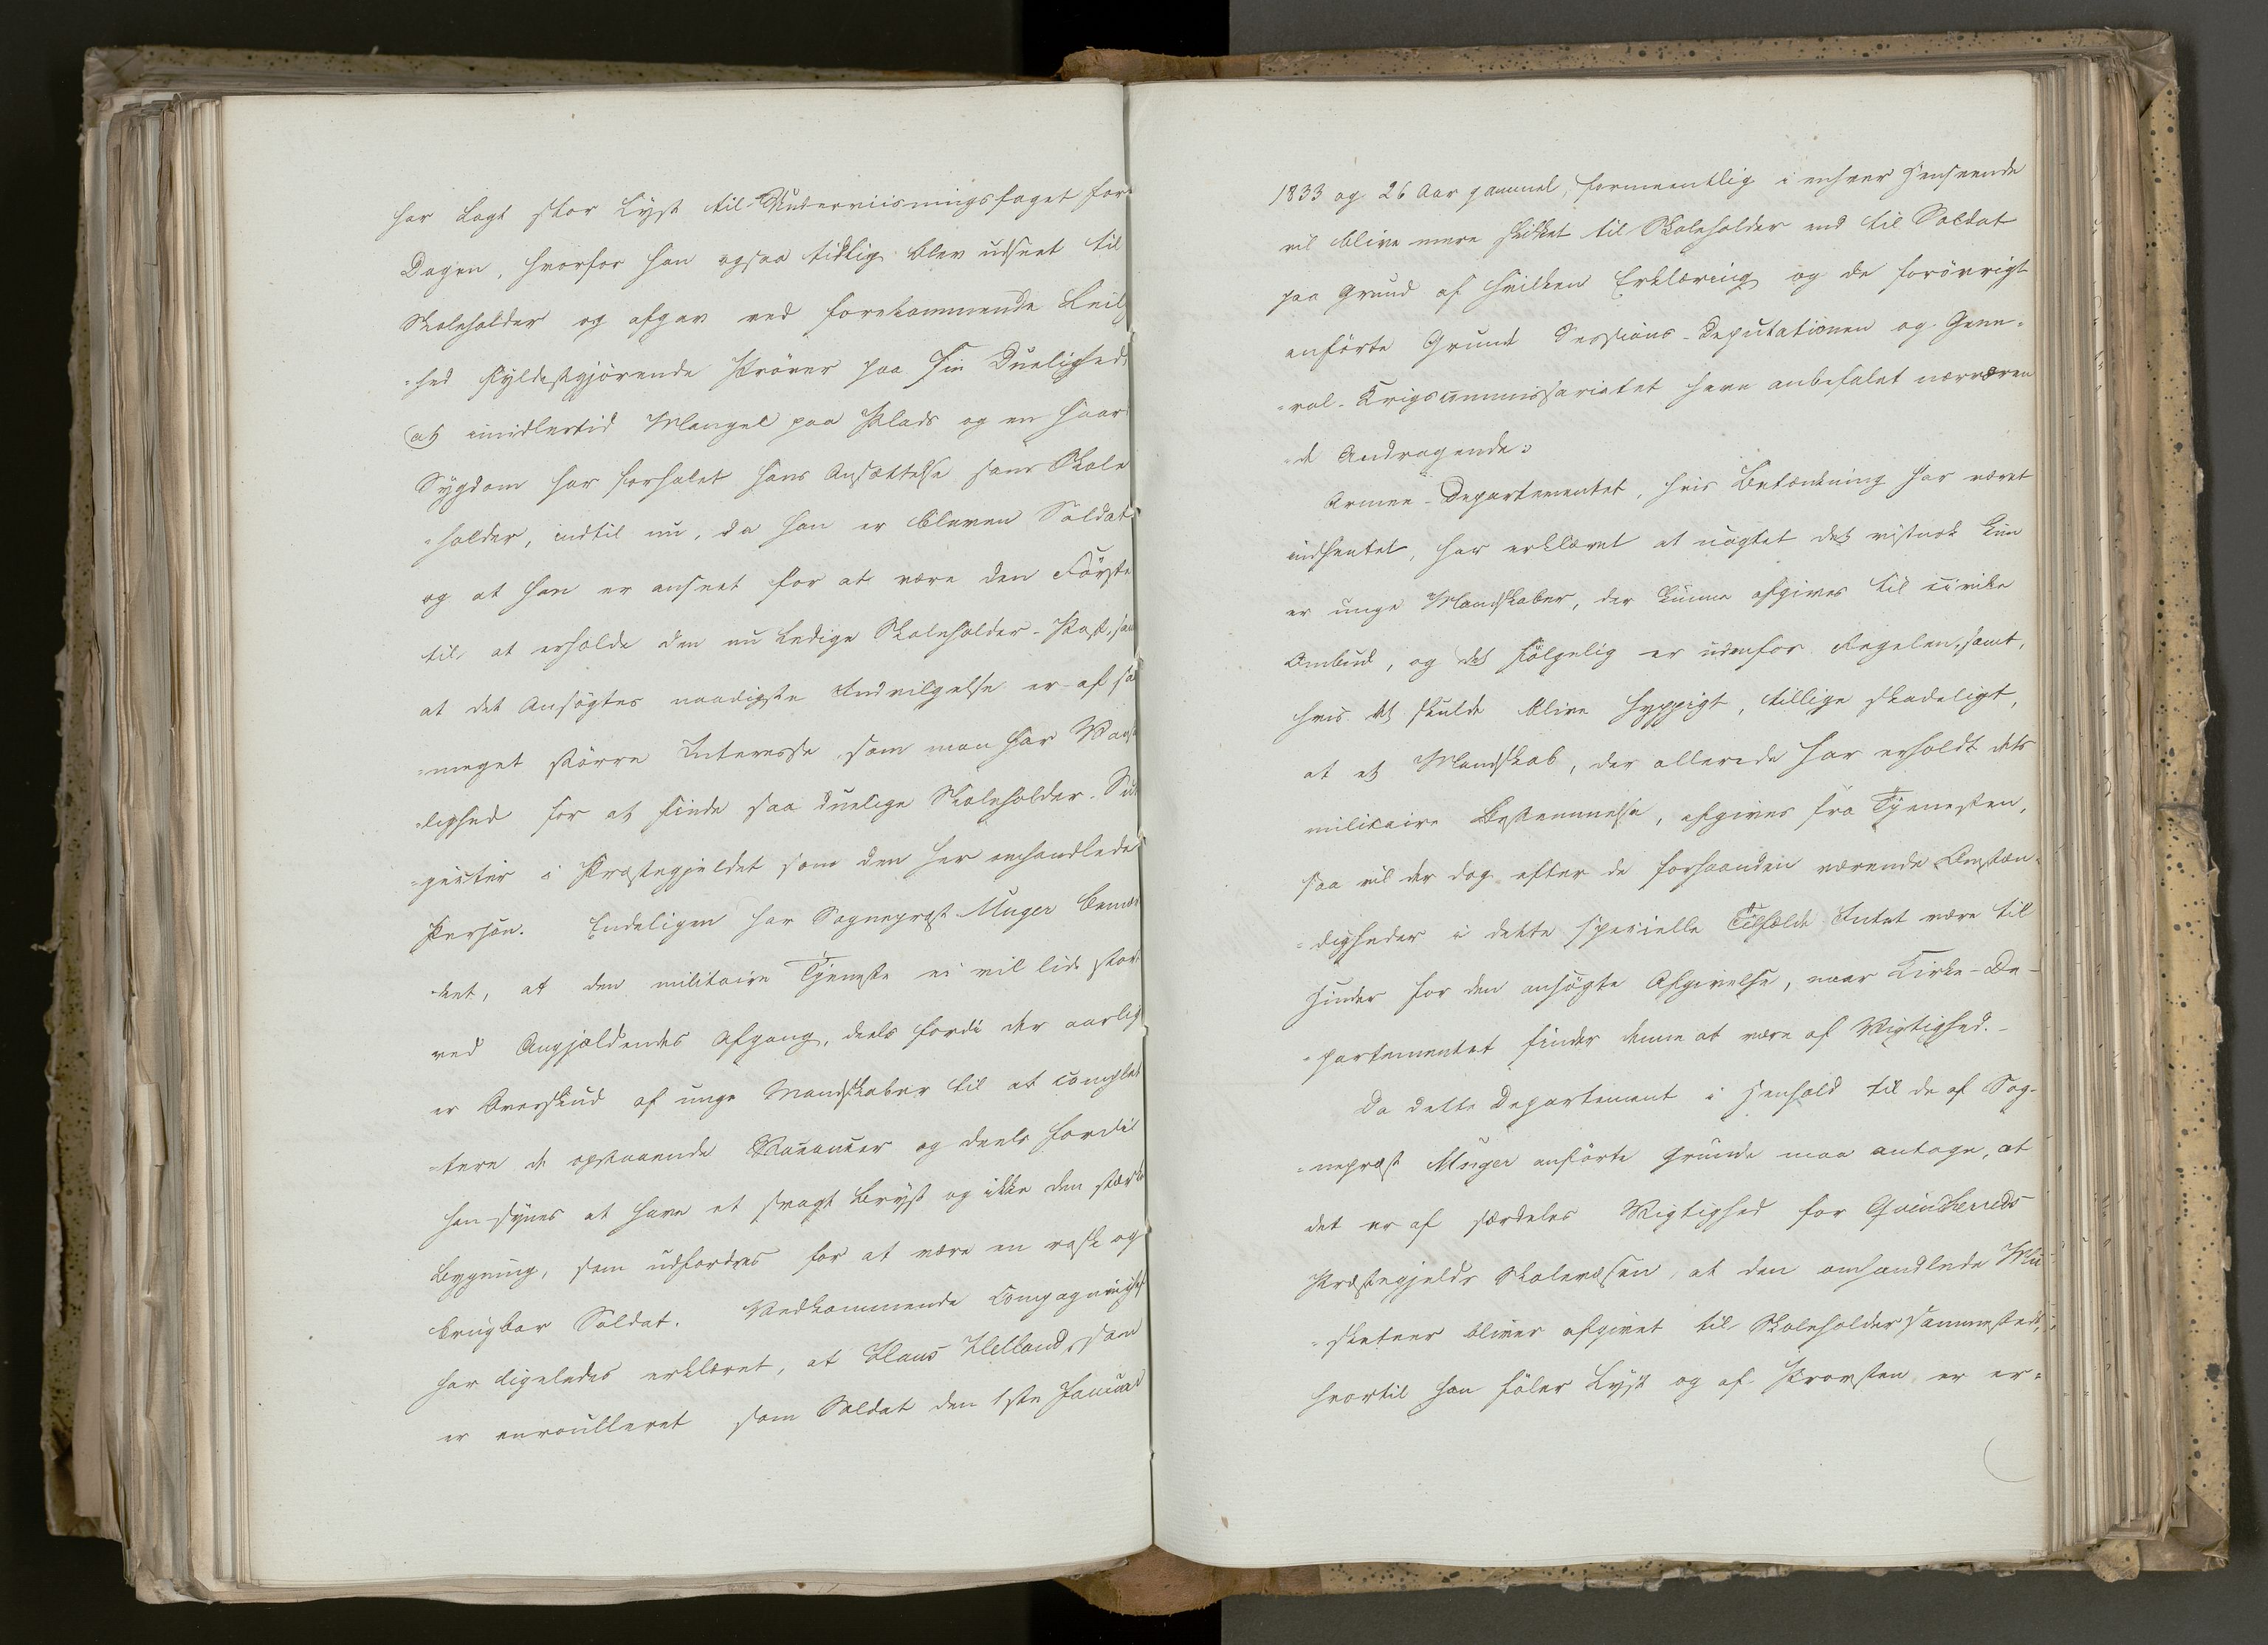 har lagt stor Lyst til Underviisningsfaget for
Dagen, hvorfor han ogsaa tidlig blev udseet til
Skoleholder og afgav ved forekommende Leilig
-hed fyldestgjørende Prøver paa sin Duelighed,
at imidlertid Mangel paa Plads og en haard
Sygdom har forhalet hans Ansættelse som Skole
-holder, indtil nu, da han er bleven Soldat
og at han er anseet for at være den Første
til at erholde den nu ledige Skoleholder-Post, samt
at det Ansøgtes naadigste Indvilgelse er af saa
-meget større Interesse som man har Vanske
-lighed for at finde saa duelige Skoleholder-Sub
-jecter i Præstegjeldet som den her omhandlede
Person. Endeligen har Sognepræst Unger bemær
-ket, at den militaire Tjeneste ei vil lide stort
ved Angjældendes Afgang, deels fordi der aarlig
er Overskud af unge Mandskaber til at complet
-tere de opstaaende Vacancer og deels fordi
han synes at have et svagt Bryst og ikke den stærke
Bygning, som udfordres for at være en rask og
brugbar Soldat. Vedkommende Compagniechef
har ligeledes erklæret, at Hans Helland, som
er enroulleret som Soldat den 1ste Januar
1833 og 26 Aar gammel, formeentlig i enhver Henseende
vil blive mere skikket til Skoleholder end til Soldat
paa Grund af hvilken Erklæring og de forøvrigt
anførte Grunde Sessions-Deputationen og Gene-
-ral-Krigscommissariatet have anbefalet nærværen
-de Andragende.
Armee-Departementet, hvis Betænkning har været
indhentet, har erklæret at uagtet det vistnok kun
er unge Mandskaber, der kunne afgives til civile
Ombud, og det følgelig er udenfor Regelen, samt,
hvis det skulde blive hyppigt, tillige skadeligt,
at et Mandskab, der allerede har erholdt dets
militaire Bestemmelse, afgives fra Tjenesten,
saa vil der dog efter de forhaanden værende Omstæn-
-digheder i dette specielle Tilfælde Intet være til
Hinder for den ansøgte Afgivelse, naar Kirke-De-
-partementet finder denne at være af Vigtighed.-
Da dette Departement i Henhold til de af Sog-
-nepræst Unger anførte Grunde maa antage, at
det er af særdeles Vigtighed for Qvindherreds
Præstegjelds Skolevæsen, at den omhandlede Mu-
-sketeer bliver afgivet til Skoleholder sammesteds,
hvortil han føler Lyst og af Provsten er er-